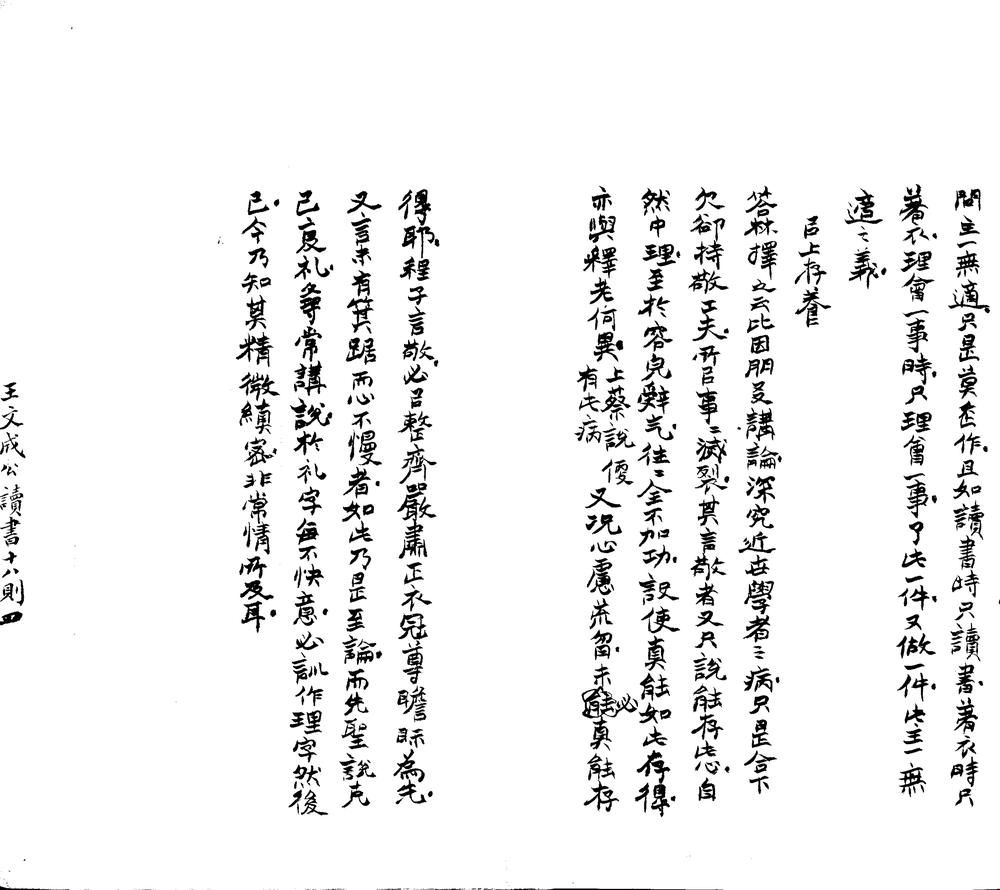 問主一無適只是莫走作且如讀書時只讀書著衣時只
著衣理會一事時只理會一事了此一件又做一件此主一無
適之義
㠯上存養
答林擇之云比因朋友講論深究近世學者之病只是合下
欠卻持敬工夫所㠯事〻滅裂其言敬者又只說能存此心自
然中理至於容皃辭气往〻全不加功設使真能如此存得
亦與釋老何異上蔡說便有此病又况心慮荒畱未必真能存
得耶程子言敬必㠯整齊嚴肅正衣冠尊瞻眎為先
又言未有箕踞而心不慢者如此乃是至論而先聖說克
己復礼尋常講說於礼字每不快意必訓作理字然後
已今乃知其精微縝密非常情所及耳
王文成公讀書十八則 四